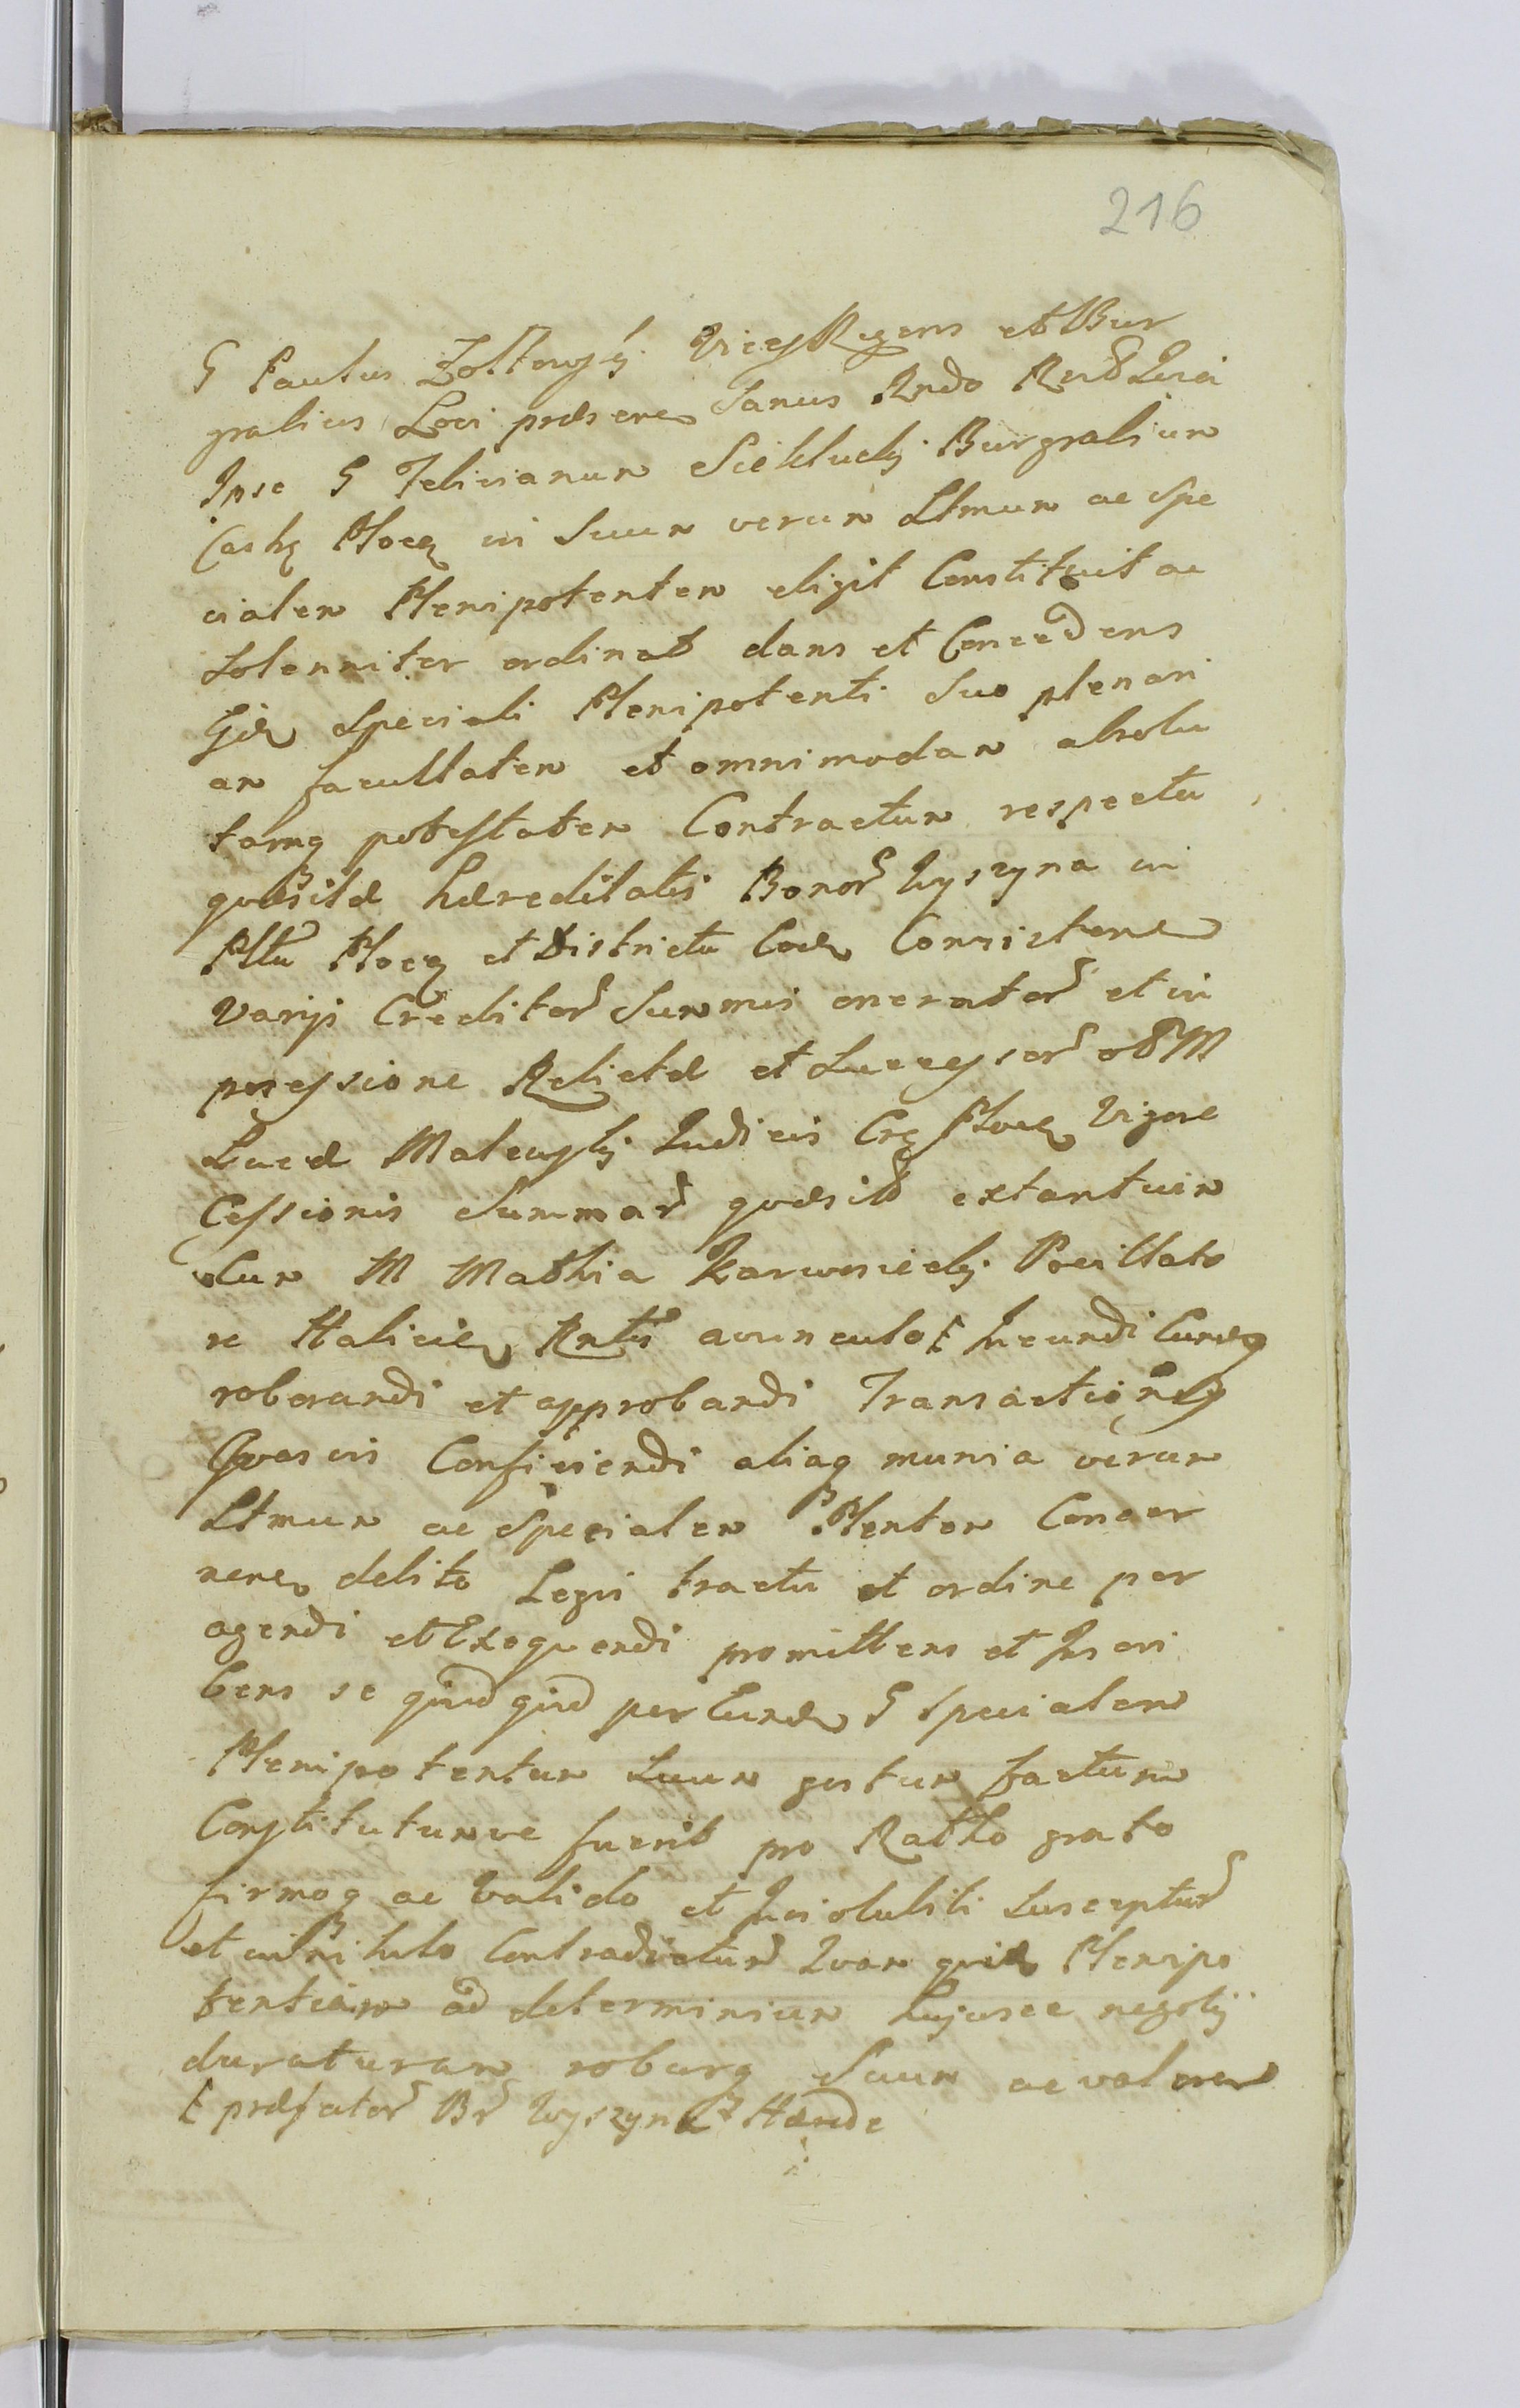 216
G Paulus Zołtowski ViceRegens et Bur
grabius Loci praesens Sanus Rndo Recog Quia
Ipse G Felicianum Sieklucki Burgrabium
Castr Plocen in Suum verum Ltmum ac Spe
cialem Plenipotentem eligit Constituit ac
Solenniter ordinat dans et Concedens
Eid Speciali Plenipotenti Suo plenari
am facultatem et omnimodam absolu
tamq potestatem Contractum respectu
quaesitae haereditatis Bonor Wyszyna in
Plttu Plocen et Districtu Eod Consisten
Varijs Creditor Summis onerator et in
possessione Relictae et Successor olim M
Lucae Mateuski Judicis Plocen Vigore
Cessionis Summar quaesit extantium
Cum M Mathia Karwosiecki Pocillato
re Halicien Rntis avunculo ineundi Eumq
roborandi et approbandi Transactiones
Quasvis Conficiendi aliaq munia verum
Ltmum ac Specialem Plentem Concer
nen debito Legis tractu et ordine per
agendi et Exequendi promittens et Inscri
bens se quidquid per Eund G Specialem
Plenipotentem Suum gestum factum
Constitutumve fuerit pro Ratto grato
firmoq ac Valido et Inviolabili Susceptur
et in nihilo Contradictur Quam quid Plenipo
tentiam ad determinium hujusce negotij
duraturam roburq Suum ac valorem
praefator Br Wyszyna Haerede